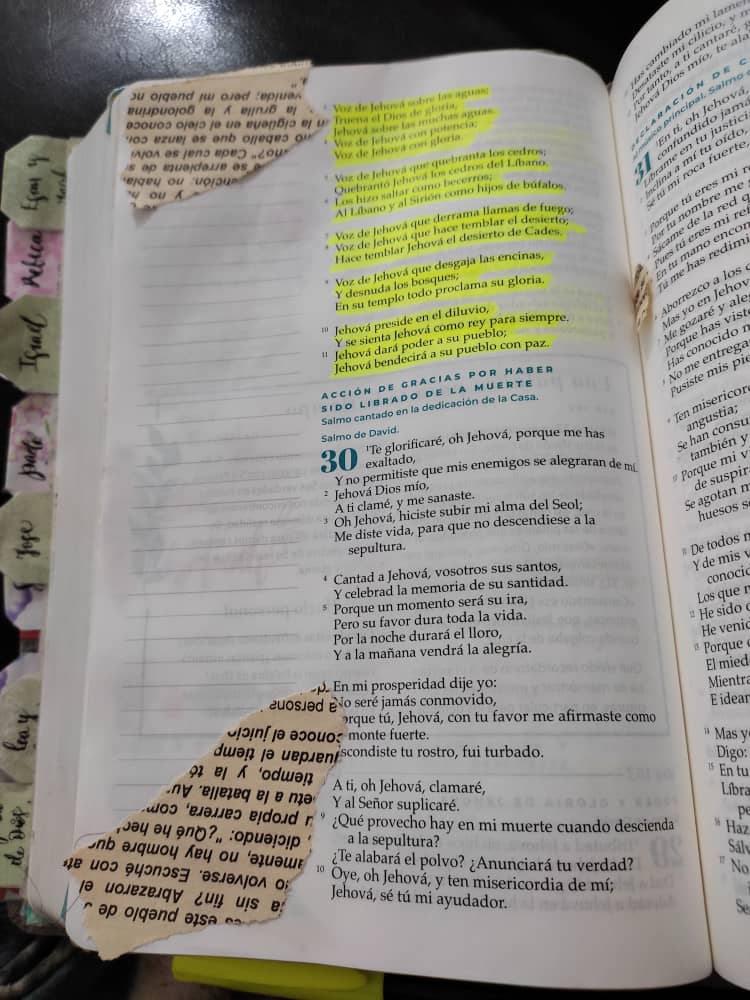 3 Voz de Jehová sobre las aguas;
Truena el Dios de gloria,
Jehová sobre las muchas aguas.
4 Voz de Jehová con potencia;
Voz de Jehová con gloria.
5 Voz de Jehová que quebranta los cedros;
Quebrantó Jehová los cedros del Líbano.
6 Los hizo saltar como becerros;
Al Líbano y al Sirión como hijos de búfalos.
7 Voz de Jehová que derrama llamas de fuego;
8 Voz de Jehová que hace temblar el desierto;
Hace temblar Jehová el desierto de Cades.
9 Voz de Jehová que desgaja las encinas,
Y desnuda los bosques;
En su templo todo proclama su gloria.
10 Jehová preside en el diluvio,
Y se sienta Jehová como rey para siempre.
11 Jehová dará poder a su pueblo;
Jehová bendecirá a su pueblo con paz.
ACCIÓN DE GRACIAS POR HABER
SIDO LIBRADO DE LA MUERTE
Salmo cantado en la dedicación de la Casa.
Salmo de David.
30 1Te glorificaré, oh Jehová, porque me has
exaltado,
Y no permitiste que mis enemigos se alegraran de mí.
2 Jehová Dios mío,
A ti clamé, y me sanaste.
3 Oh Jehová, hiciste subir mi alma del Seol;
Me diste vida, para que no descendiese a la
sepultura.
4 Cantad a Jehová, vosotros sus santos,
Y celebrad la memoria de su santidad.
5 Porque un momento será su ira,
Pero su favor dura toda la vida.
Por la noche durará el lloro,
Y a la mañana vendrá la alegría.
En mi prosperidad dije yo:
No seré jamás conmovido,
orque tú, Jehová, con tu favor me afirmaste como
monte fuerte.
scondiste tu rostro, fui turbado.
A ti, oh Jehová, clamaré,
Y al Señor suplicaré.
9 ¿Qué provecho hay en mi muerte cuando descienda
a la sepultura?
¿Te alabará el polvo? ¿Anunciará tu verdad?
10 Oye, oh Jehová, y ten misericordia de mí;
Jehová, sé tú mi ayudador.
venida; pero mi pueblo no
la grulla y la golondrina
n la cigüeña en el cielo conoce
no caballo que se lanza con
Cada cual se volvi
se arrepienta de s
este pueblo de
sin fin? Abrazaron el
volverse. Escuché con
amente, no hay hombre que
diciendo: "¿Qué he hec
propia carrera, com
etu a la batalla. Au
tiempo, y la tó
guardan el tiemp
conoce el juicio
a persona
Rebeca
Israel
Jose
Lea y
de Dios
Has cambiado mi lame
Desataste mi cilicio, y m
Por tanto, a ti cantaré,
Jehová Dios mío, te ala
DECLARACIÓN DE C
principal. Salmo
31 1En ti, oh Jehová
confundido jam
Líbrame en tu justici
clina a mí tu oído,
Sé tú mi roca fuerte,
Porque tú eres mi r
por tu nombre me
Sácame de la red q
Pues tú eres mi re
En tu mano encon
Tú me has redimi
Aborrezco a los
Mas yo en Jehov
Me gozaré y ale
Porque has vist
Has conocido m
No me entrega
Pusiste mis pie
Ten misericor
angustia;
Se han consu
también y
Porque mi v
de suspir
Se agotan m
huesos s
De todos m
Y de mis v
conocic
Los que m
12 He sido
He venid
13 Porque
El mied
Mientra
E idear
14 Mas y
Digo:
15 En tu
Líbra
pe
16 Haz
Sálv
17 No
Se